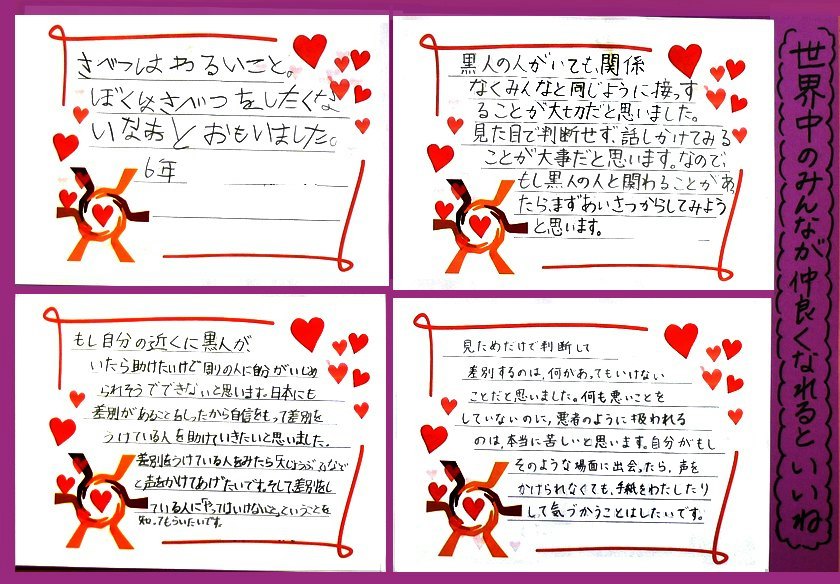 さべつはわるいこと。
ぼくはさべつをしたくな
いなおとおもいました。
6年
黒人の人がいても、関係
なくみんなと同じように接っす
ることが大切だと思いました。
見た目で判断せず、話しかけてみる
ことが大事だと思います。なので、
もし黒人の人と関わることがあっ
たら、まずあいさつからしてみよう
と思います。
もし自分の近くに黒人が、
いたら助けたいけど周りの人に自分がいじめ
られそうでできないと思います。日本にも
差別があることもしったから自信をもって差別を
うけている人を助けていきたいと思いました。
差別をうけている人をみたら「大じょうぶ?」など
と声をかけてあげたいです。そして差別をし
ている人に「やってはいけない」ということを
知ってもらいたいです。
見ためだけで判断して
差別するのは、何があってもいけない
ことだと思いました。何も悪いことを
していないのに、悪者のように扱われる
のは、本当に苦しいと思います。自分がもし
そのような場面に出会ったら、声を
かけられなくても、手紙をわたしたり
して気づかうことはしたいです。
世界中のみんなが仲良くなれるといいね